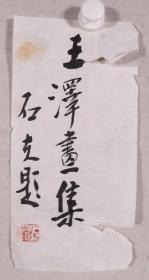 王澤畫集
石克题